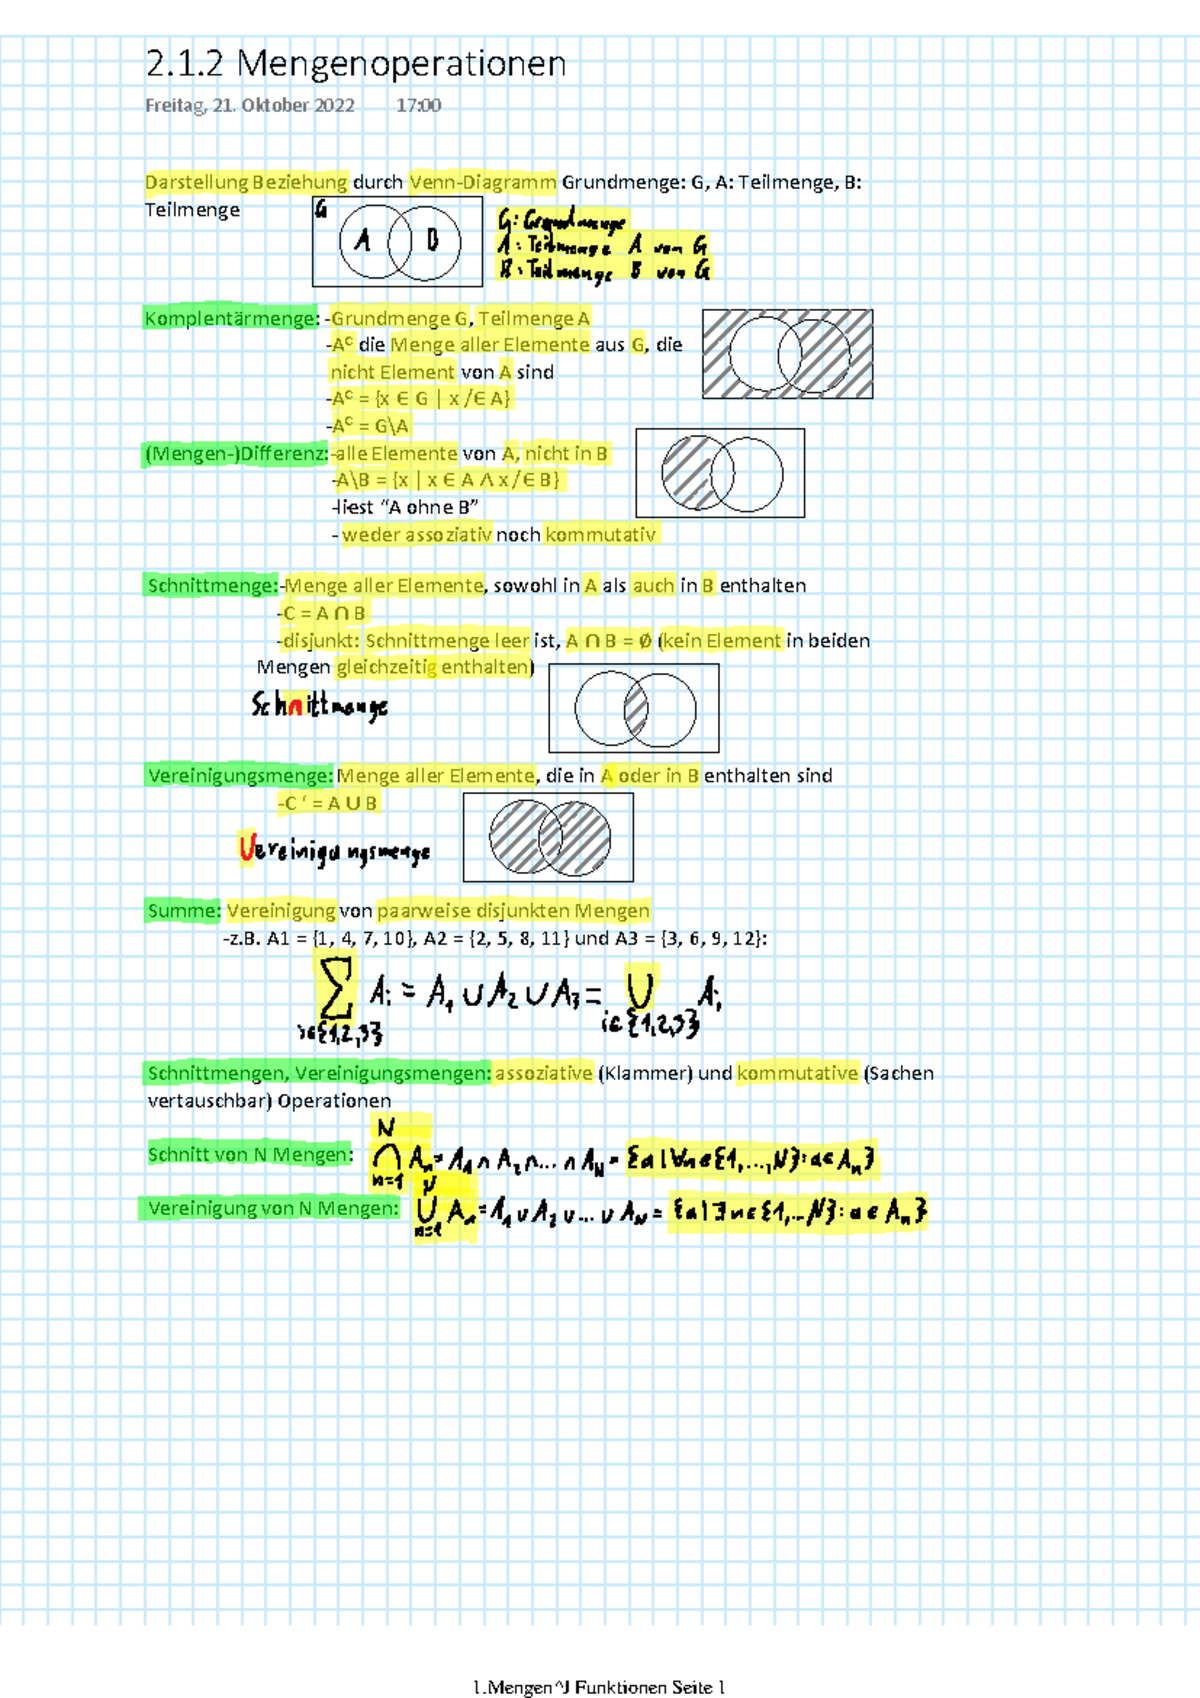 2.1.2 Mengenoperationen
Freitag, 21. Oktober 2022 17:00
Darstellung Beziehung durch Venn-Diagramm Grundmenge: G, A: Teilmenge, B:
Teilmenge
G
A B
G: Grundmenge
A: Teilmenge A von G
B: Teilmenge B von G
Komplentärmenge: -Grundmenge G, Teilmenge A
-Aᶜ die Menge aller Elemente aus G, die
nicht Element von A sind
-Aᶜ = {x ∈ G | x /∈ A}
-Aᶜ = G\A
(Mengen-)Differenz:-alle Elemente von A, nicht in B
-A\B = {x | x ∈ A ∧ x /∈ B}
-liest “A ohne B”
- weder assoziativ noch kommutativ
Schnittmenge:-Menge aller Elemente, sowohl in A als auch in B enthalten
-C = A ∩ B
-disjunkt: Schnittmenge leer ist, A ∩ B = ∅ (kein Element in beiden
Mengen gleichzeitig enthalten)
Schnittmenge
Vereinigungsmenge: Menge aller Elemente, die in A oder in B enthalten sind
-C ‘ = A ∪ B
Vereinigungsmenge
Summe: Vereinigung von paarweise disjunkten Mengen
-z.B. A1 = {1, 4, 7, 10}, A2 = {2, 5, 8, 11} und A3 = {3, 6, 9, 12}:
∑ Aᵢ = A₁ ∪ A₂ ∪ A₃ = ∪ Aᵢ
i∈{1,2,3} i∈{1,2,3}
Schnittmengen, Vereinigungsmengen: assoziative (Klammer) und kommutative (Sachen
vertauschbar) Operationen
N
Schnitt von N Mengen: ∩ Aₙ = A₁ ∩ A₂ ∩ ... ∩ A_N = {a | ∀n∈{1,...,N}: a∈Aₙ}
n=1
N
Vereinigung von N Mengen: ∪ Aₙ = A₁ ∪ A₂ ∪ ... ∪ A_N = {a | ∃n∈{1,..N}: a∈Aₙ}
n=1
1.Mengen^J Funktionen Seite 1